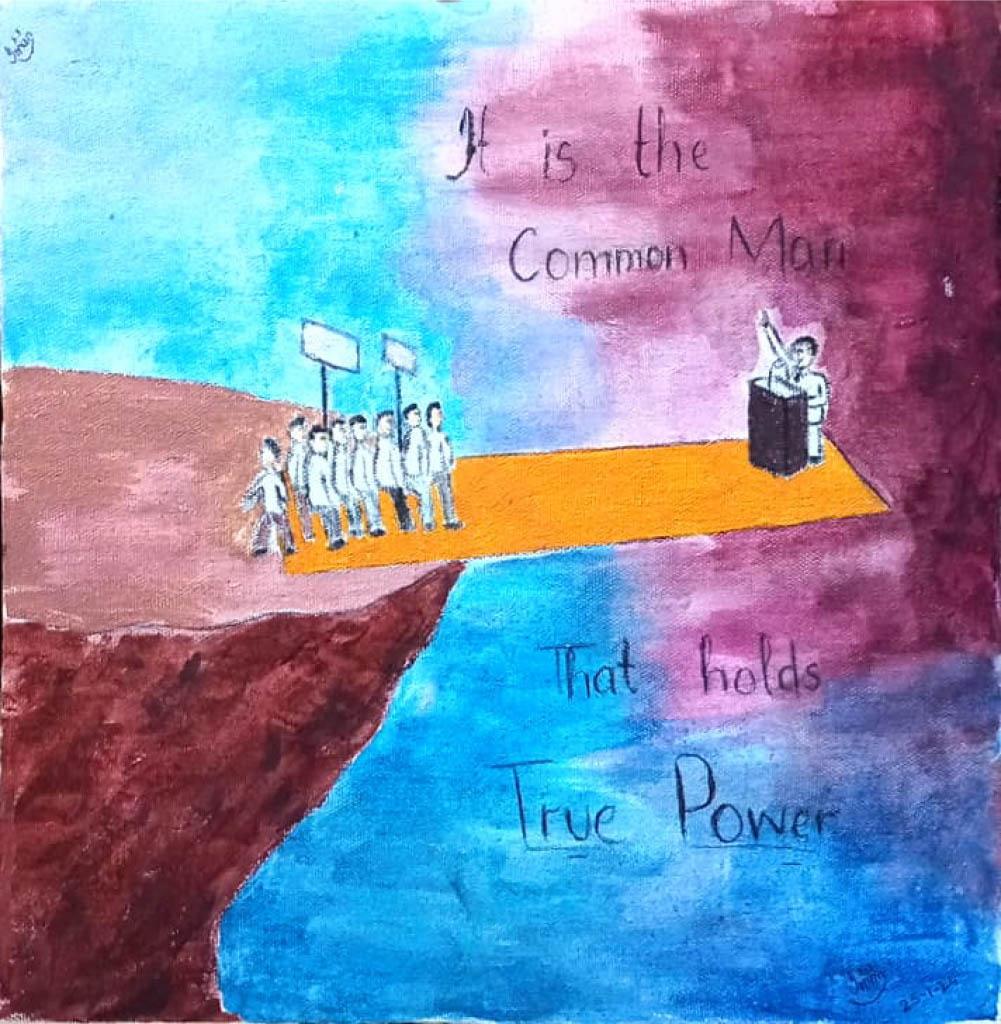 It is the
Common Man
That holds
True Power